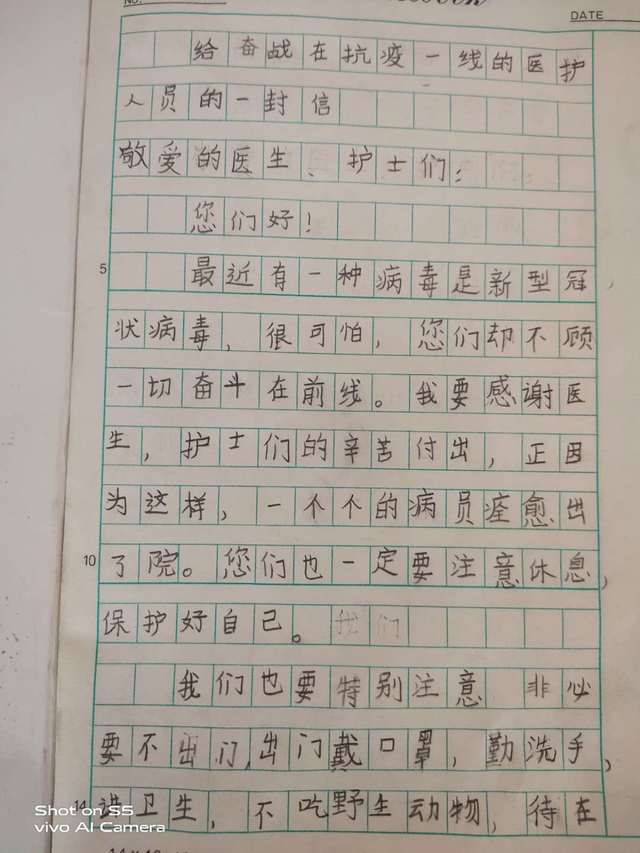 DATE
给奋战在抗疫一线的医护
人员的一封信
敬爱的医生、护士们：
您们好！
5 最近有一种病毒是新型冠
状病毒，很可怕，您们却不顾
一切奋斗在前线。我要感谢医
生，护士们的辛苦付出，正因
为这样，一个个的病员痊愈出
10 了院。您们也一定要注意休息，
保护好自己。我们
我们也要特别注意 非必
要不出们，出门戴口罩，勤洗手，
14 讲卫生，不吃野生动物，待在
Shot on S5
vivo AI Camera